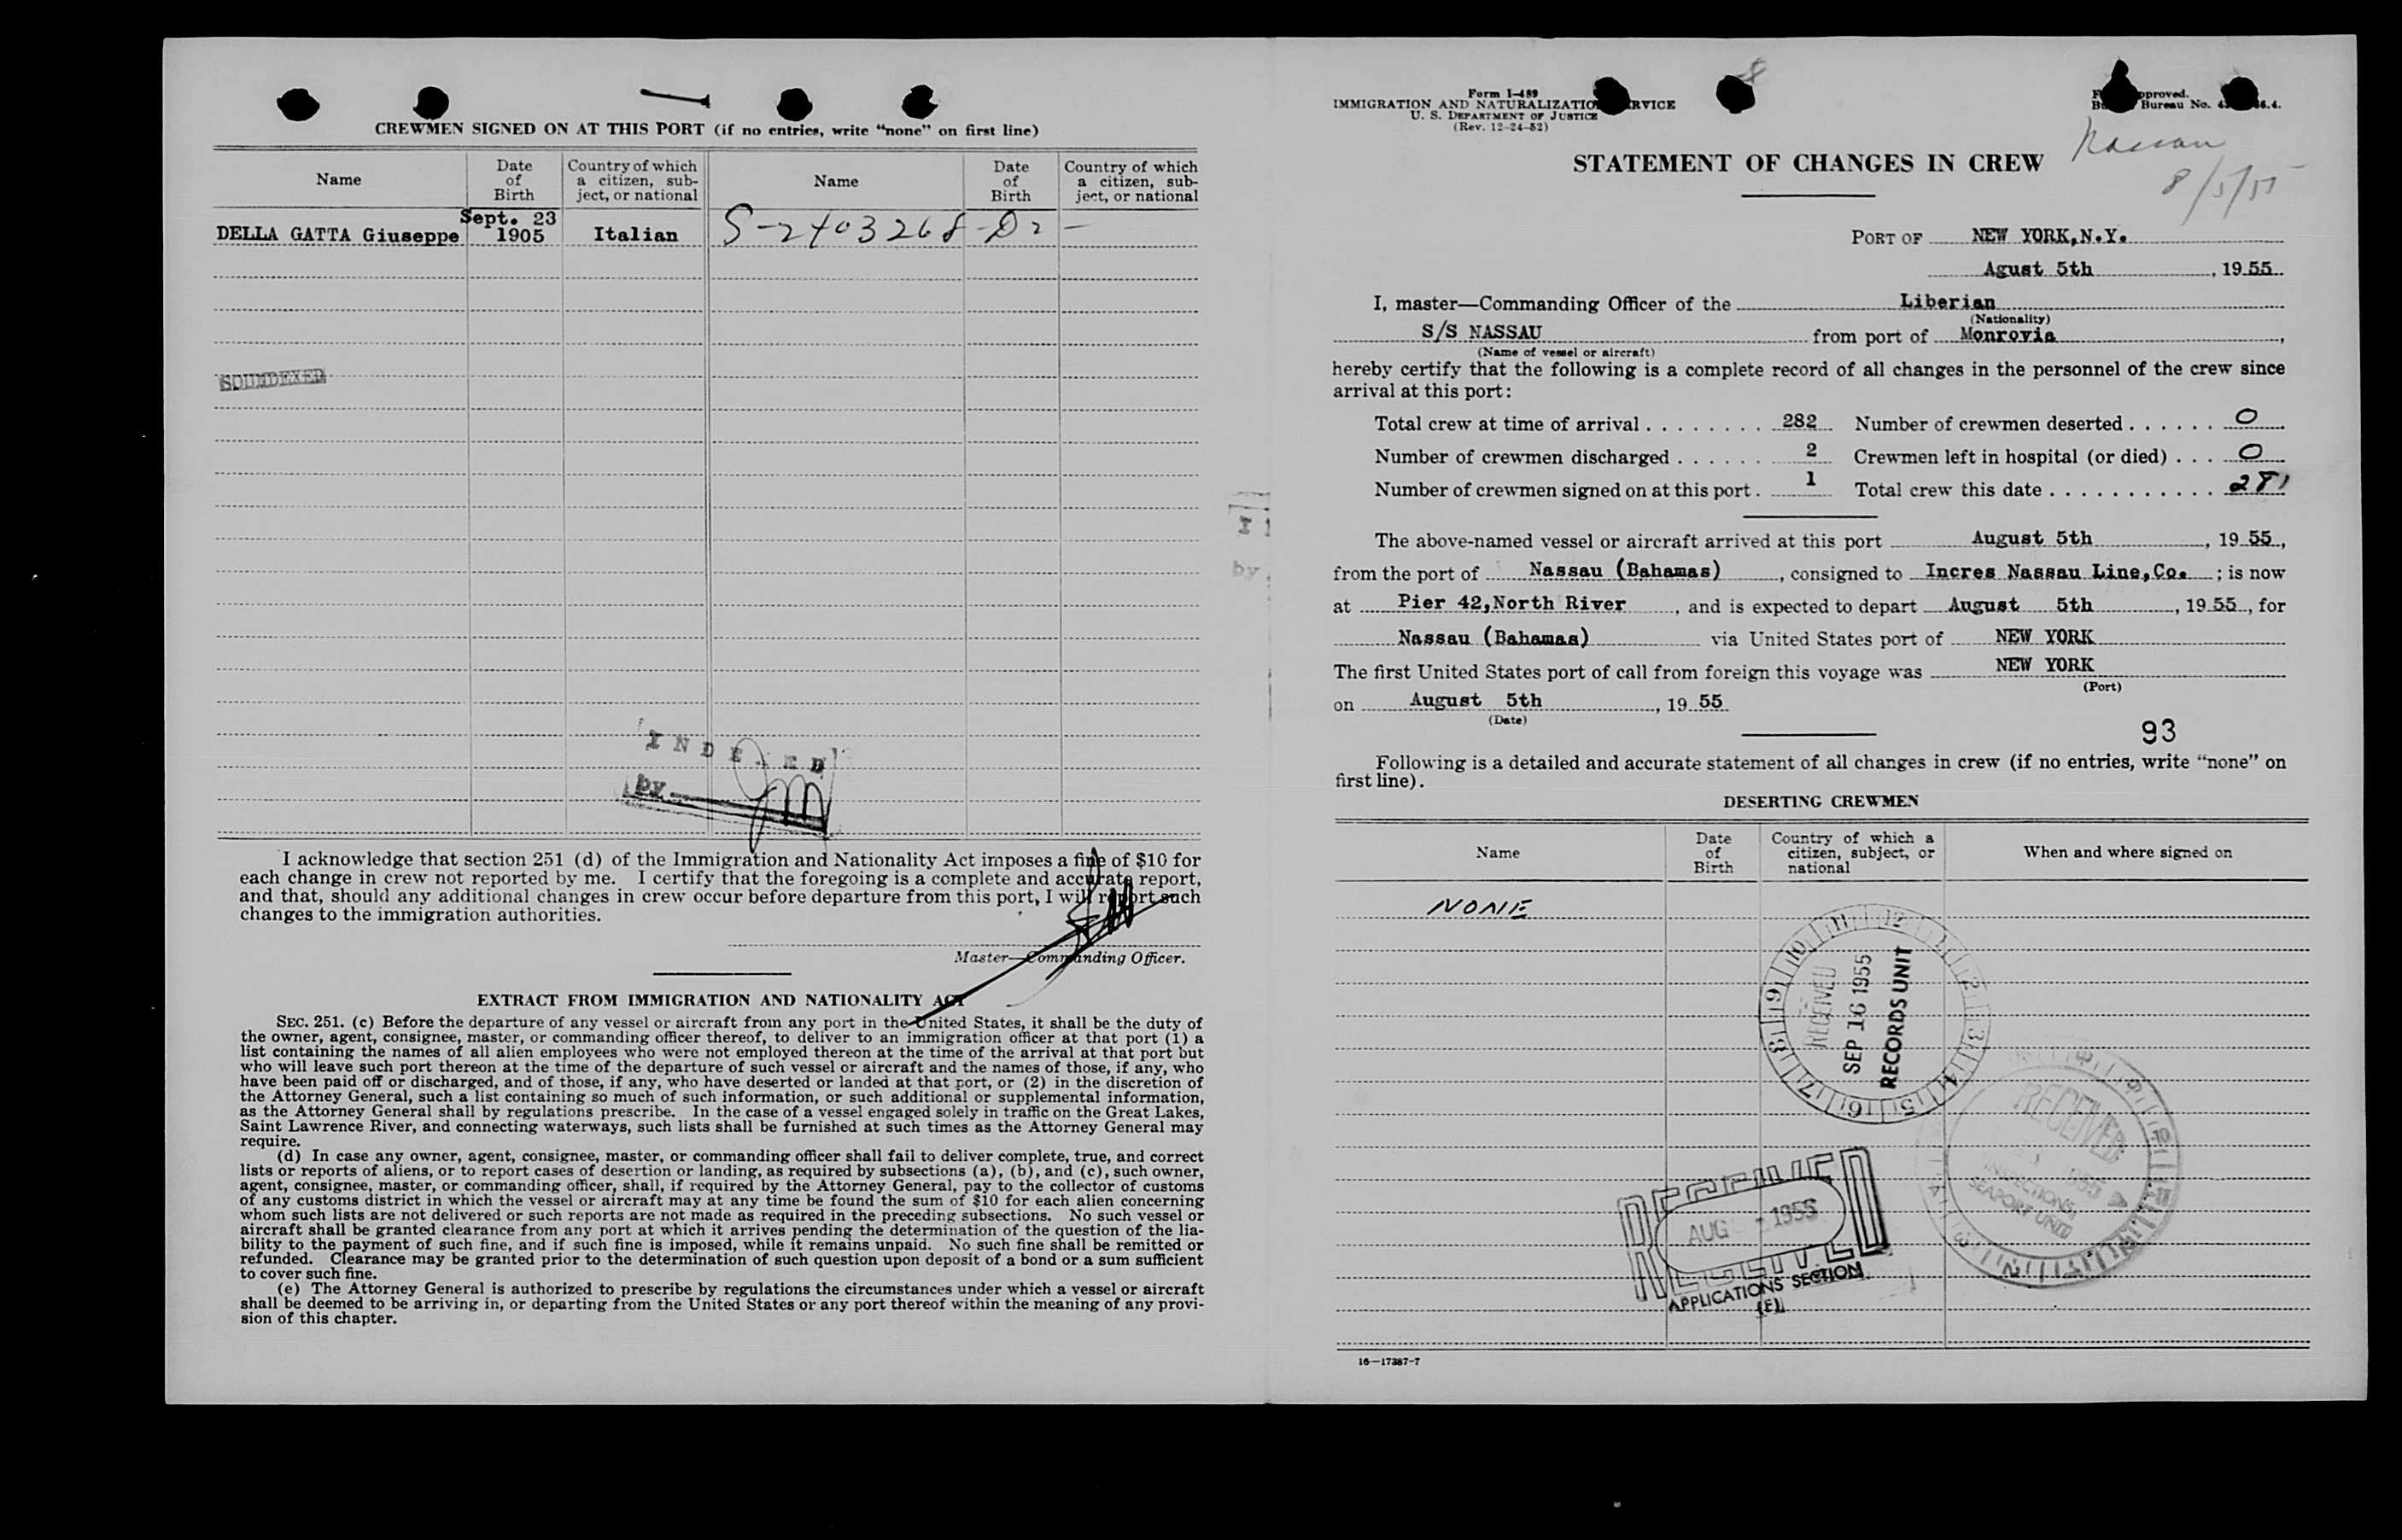 CREWMEN SIGNED ON AT THIS PORT (if no entries, write “none” on first line)
Name
Date of Birth
Country of which a citizen, subject, or national
Name
Date of Birth
Country of which a citizen, subject, or national
DELLA GATTA Giuseppe Sept. 23 1905 Italian S-2403268-D2 –
SOUNDEXED
INDEXED
by
I acknowledge that section 251 (d) of the Immigration and Nationality Act imposes a fine of $10 for
each change in crew not reported by me. I certify that the foregoing is a complete and accurate report,
and that, should any additional changes in crew occur before departure from this port, I will report such
changes to the immigration authorities.
Master—Commanding Officer.
EXTRACT FROM IMMIGRATION AND NATIONALITY ACT
SEC. 251. (c) Before the departure of any vessel or aircraft from any port in the United States, it shall be the duty of
the owner, agent, consignee, master, or commanding officer thereof, to deliver to an immigration officer at that port (1) a
list containing the names of all alien employees who were not employed thereon at the time of the arrival at that port but
who will leave such port thereon at the time of the departure of such vessel or aircraft and the names of those, if any, who
have been paid off or discharged, and of those, if any, who have deserted or landed at that port, or (2) in the discretion of
the Attorney General, such a list containing so much of such information, or such additional or supplemental information,
as the Attorney General shall by regulations prescribe. In the case of a vessel engaged solely in traffic on the Great Lakes,
Saint Lawrence River, and connecting waterways, such lists shall be furnished at such times as the Attorney General may
require.
(d) In case any owner, agent, consignee, master, or commanding officer shall fail to deliver complete, true, and correct
lists or reports of aliens, or to report cases of desertion or landing, as required by subsections (a), (b), and (c), such owner,
agent, consignee, master, or commanding officer, shall, if required by the Attorney General, pay to the collector of customs
of any customs district in which the vessel or aircraft may at any time be found the sum of $10 for each alien concerning
whom such lists are not delivered or such reports are not made as required in the preceding subsections. No such vessel or
aircraft shall be granted clearance from any port at which it arrives pending the determination of the question of the lia-
bility to the payment of such fine, and if such fine is imposed, while it remains unpaid. No such fine shall be remitted or
refunded. Clearance may be granted prior to the determination of such question upon deposit of a bond or a sum sufficient
to cover such fine.
(e) The Attorney General is authorized to prescribe by regulations the circumstances under which a vessel or aircraft
shall be deemed to be arriving in, or departing from the United States or any port thereof within the meaning of any provi-
sion of this chapter.
Form I-489
IMMIGRATION AND NATURALIZATION SERVICE
U. S. DEPARTMENT OF JUSTICE
(Rev. 12-24-52)
8
Approved.
Bureau No.
Nassau
8/5/55
STATEMENT OF CHANGES IN CREW
PORT OF NEW YORK,N.Y.
Agust 5th, 19 55
I, master—Commanding Officer of the Liberian
(Nationality)
S/S NASSAU from port of Monrovia,
(Name of vessel or aircraft)
hereby certify that the following is a complete record of all changes in the personnel of the crew since
arrival at this port:
Total crew at time of arrival 282 Number of crewmen deserted 0
Number of crewmen discharged 2 Crewmen left in hospital (or died) 0
Number of crewmen signed on at this port. 1 Total crew this date 281
The above-named vessel or aircraft arrived at this port August 5th, 19 55,
from the port of Nassau (Bahamas), consigned to Incres Nassau Line,Co.; is now
at Pier 42,North River, and is expected to depart August 5th, 19 55, for
Nassau (Bahamas) via United States port of NEW YORK
The first United States port of call from foreign this voyage was NEW YORK
(Port)
on August 5th, 19 55
(Date)
93
Following is a detailed and accurate statement of all changes in crew (if no entries, write “none” on
first line).
DESERTING CREWMEN
Name
Date of Birth
Country of which a citizen, subject, or national
When and where signed on
NONE
RECEIVED
SEP 16 1955
RECORDS UNIT
RECEIVED
INSPECTIONS
SEAPORT UNIT
RECEIVED
AUG - 1955
RECEIVED
APPLICATIONS SECTION
(E)
16—17387-7